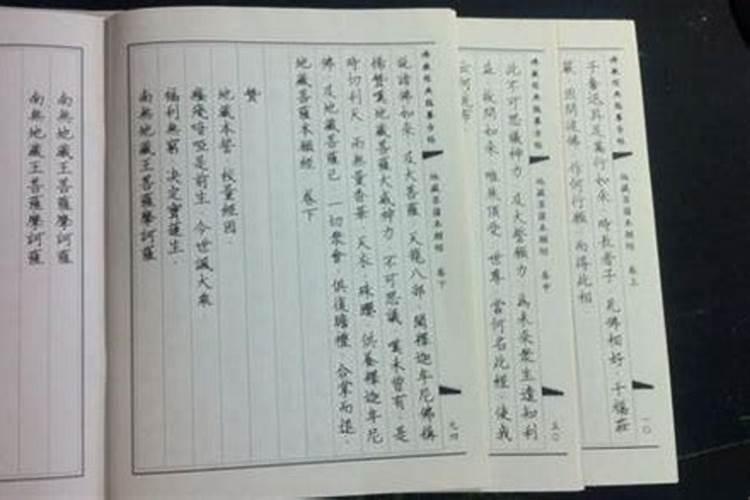 地藏菩薩本願經 卷上
一〇
子奮迅具足萬行如來 時長者子 見佛相好 千福莊
嚴 因問彼佛 作何行願 而得此相
地藏菩薩本願經 卷中
五〇
此不可思議神力 及大誓願力 為未來眾生遣知利
益 故問如來 唯然頂受 世尊 當何名此經 使我
云何流布
地藏菩薩本願經 卷下
九四
說諸佛如來 及大菩薩 天龍八部 聞釋迦牟尼佛稱
揚贊嘆地藏菩薩大威神力 不可思議 嘆未曾有 是
時忉利天 雨無量香華 天衣 珠瓔 供養釋迦牟尼
佛 及地藏菩薩已 一切眾會 俱復瞻禮 合掌而退.
地藏菩薩本願經 卷下
贊
地藏本誓 校量經因.
癃殘喑啞是前生 今世誦大乘
福利無窮 決定寶蓮生.
南無地藏王菩薩摩訶薩
南無地藏王菩薩摩訶薩
南無地藏王菩薩摩訶薩